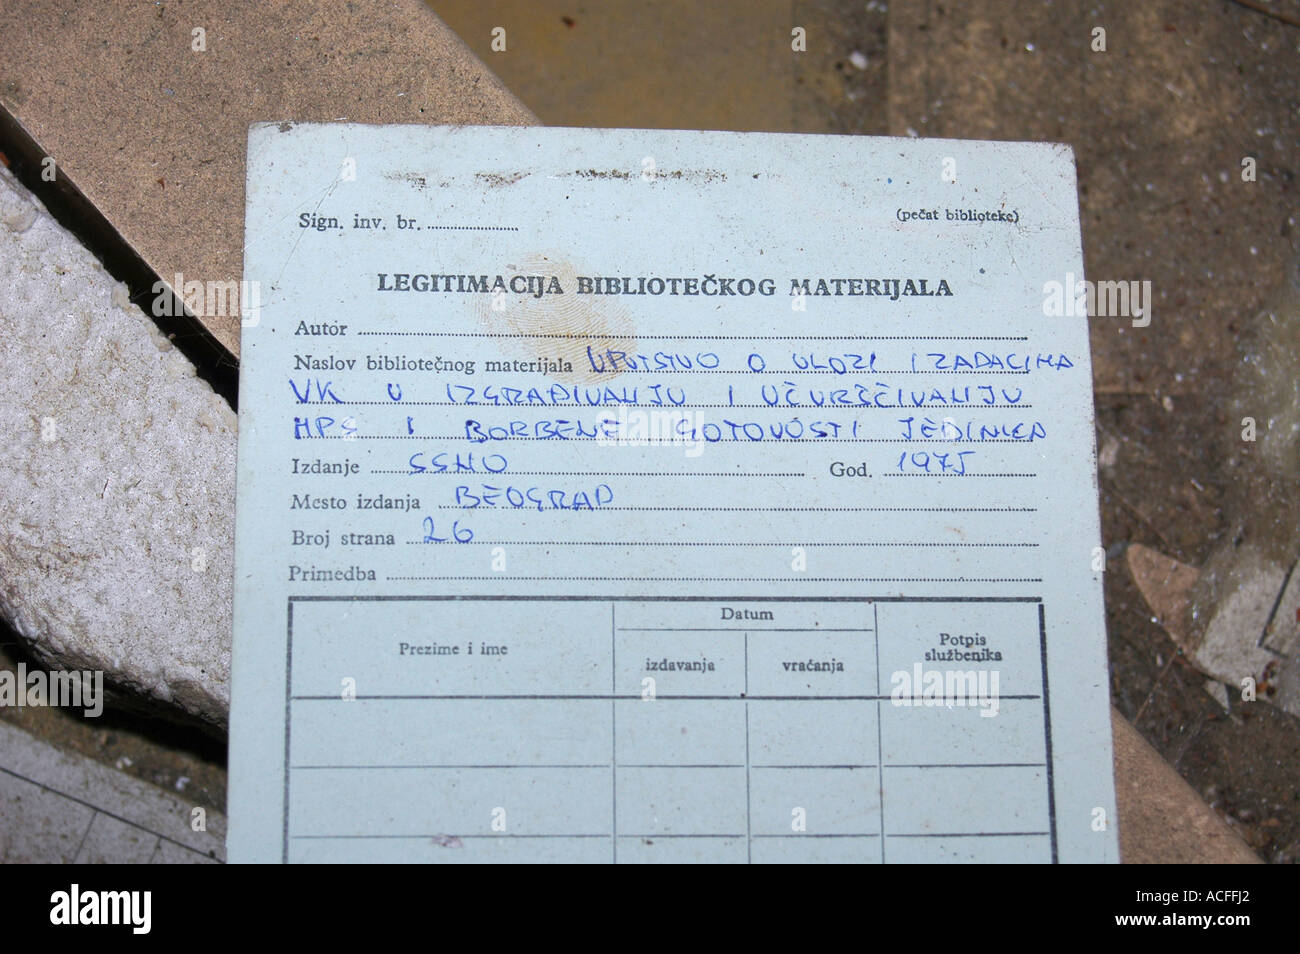 Sign. inv. br. ........................
(pečat biblioteke)
LEGITIMACIJA BIBLIOTEČKOG MATERIJALA
Autor
Naslov bibliotečnog materijala UPUTSTVO O ULOZI I ZADACIMA
VK U IZGRAĐIVANJU I UČVRŠČIVANJU
MPS I BORBENE GOTOVOSTI JEDINICA
Izdanje SSNO God. 1975
Mesto izdanja BEOGRAD
Broj strana 26
Primedba
Prezime i ime
Datum
izdavanja
vraćanja
Potpis
službenika
alamy
alamy
Image ID: ACFFJ2
www.alamy.com